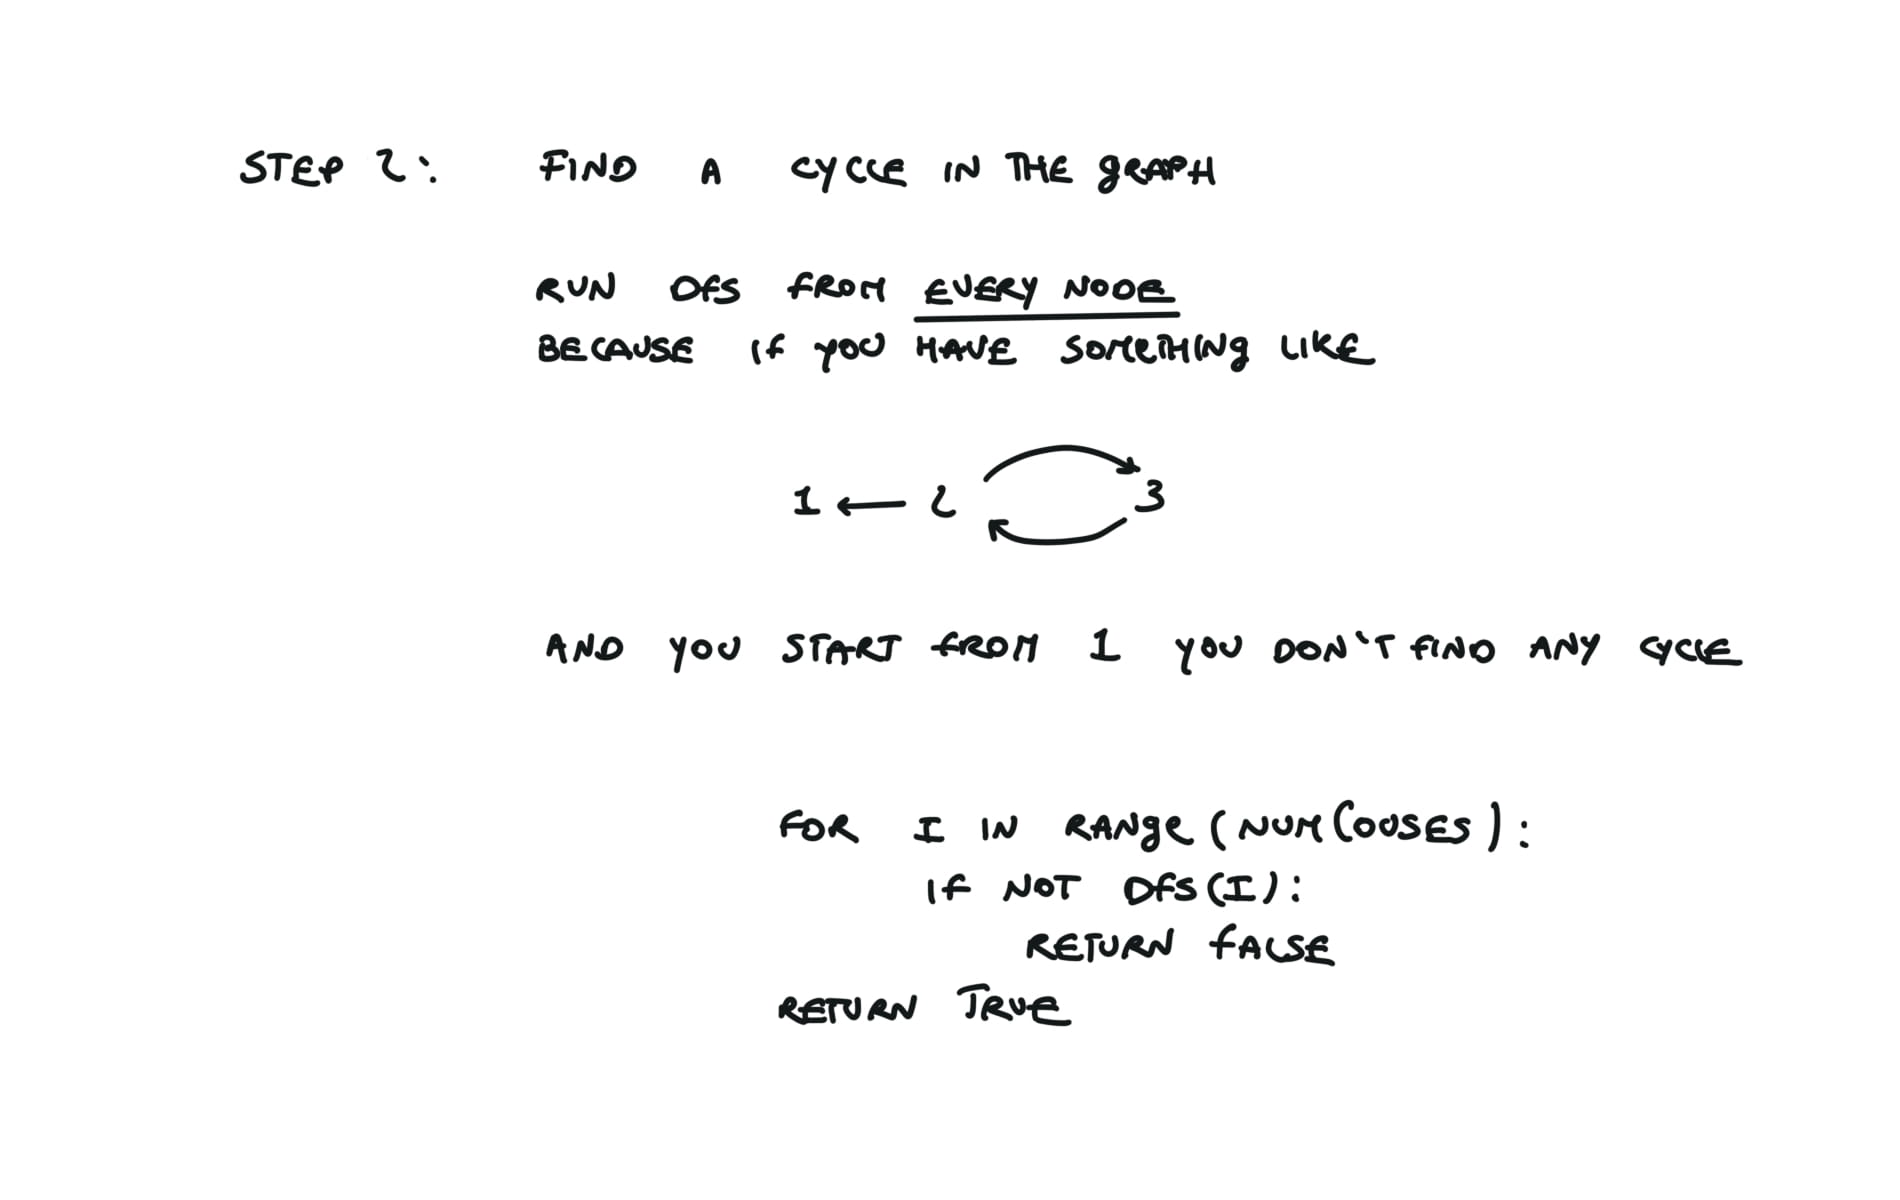 STEP 2: FIND A CYCLE IN THE GRAPH
RUN DFS FROM EVERY NODE
BECAUSE IF YOU HAVE SOMETHING LIKE
1 ← 2 3
AND YOU START FROM 1 YOU DON'T FIND ANY CYCLE
FOR I IN RANGE (NUMCOUSES):
IF NOT DFS(I):
RETURN FALSE
RETURN TRUE